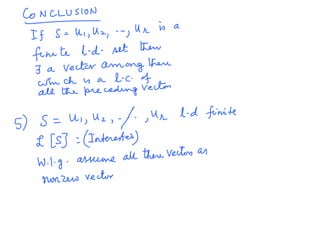 CONCLUSION
If S = u₁, u₂, --, uᵣ is a
finite l.d. set then
∃ a vector among them
which is a l.c. of
all the preceding vectors
5) S = u₁, u₂, ./. , uᵣ l.d finite
L [S] = (Interested)
W.l.g. assume all these vectors as
nonzero vector